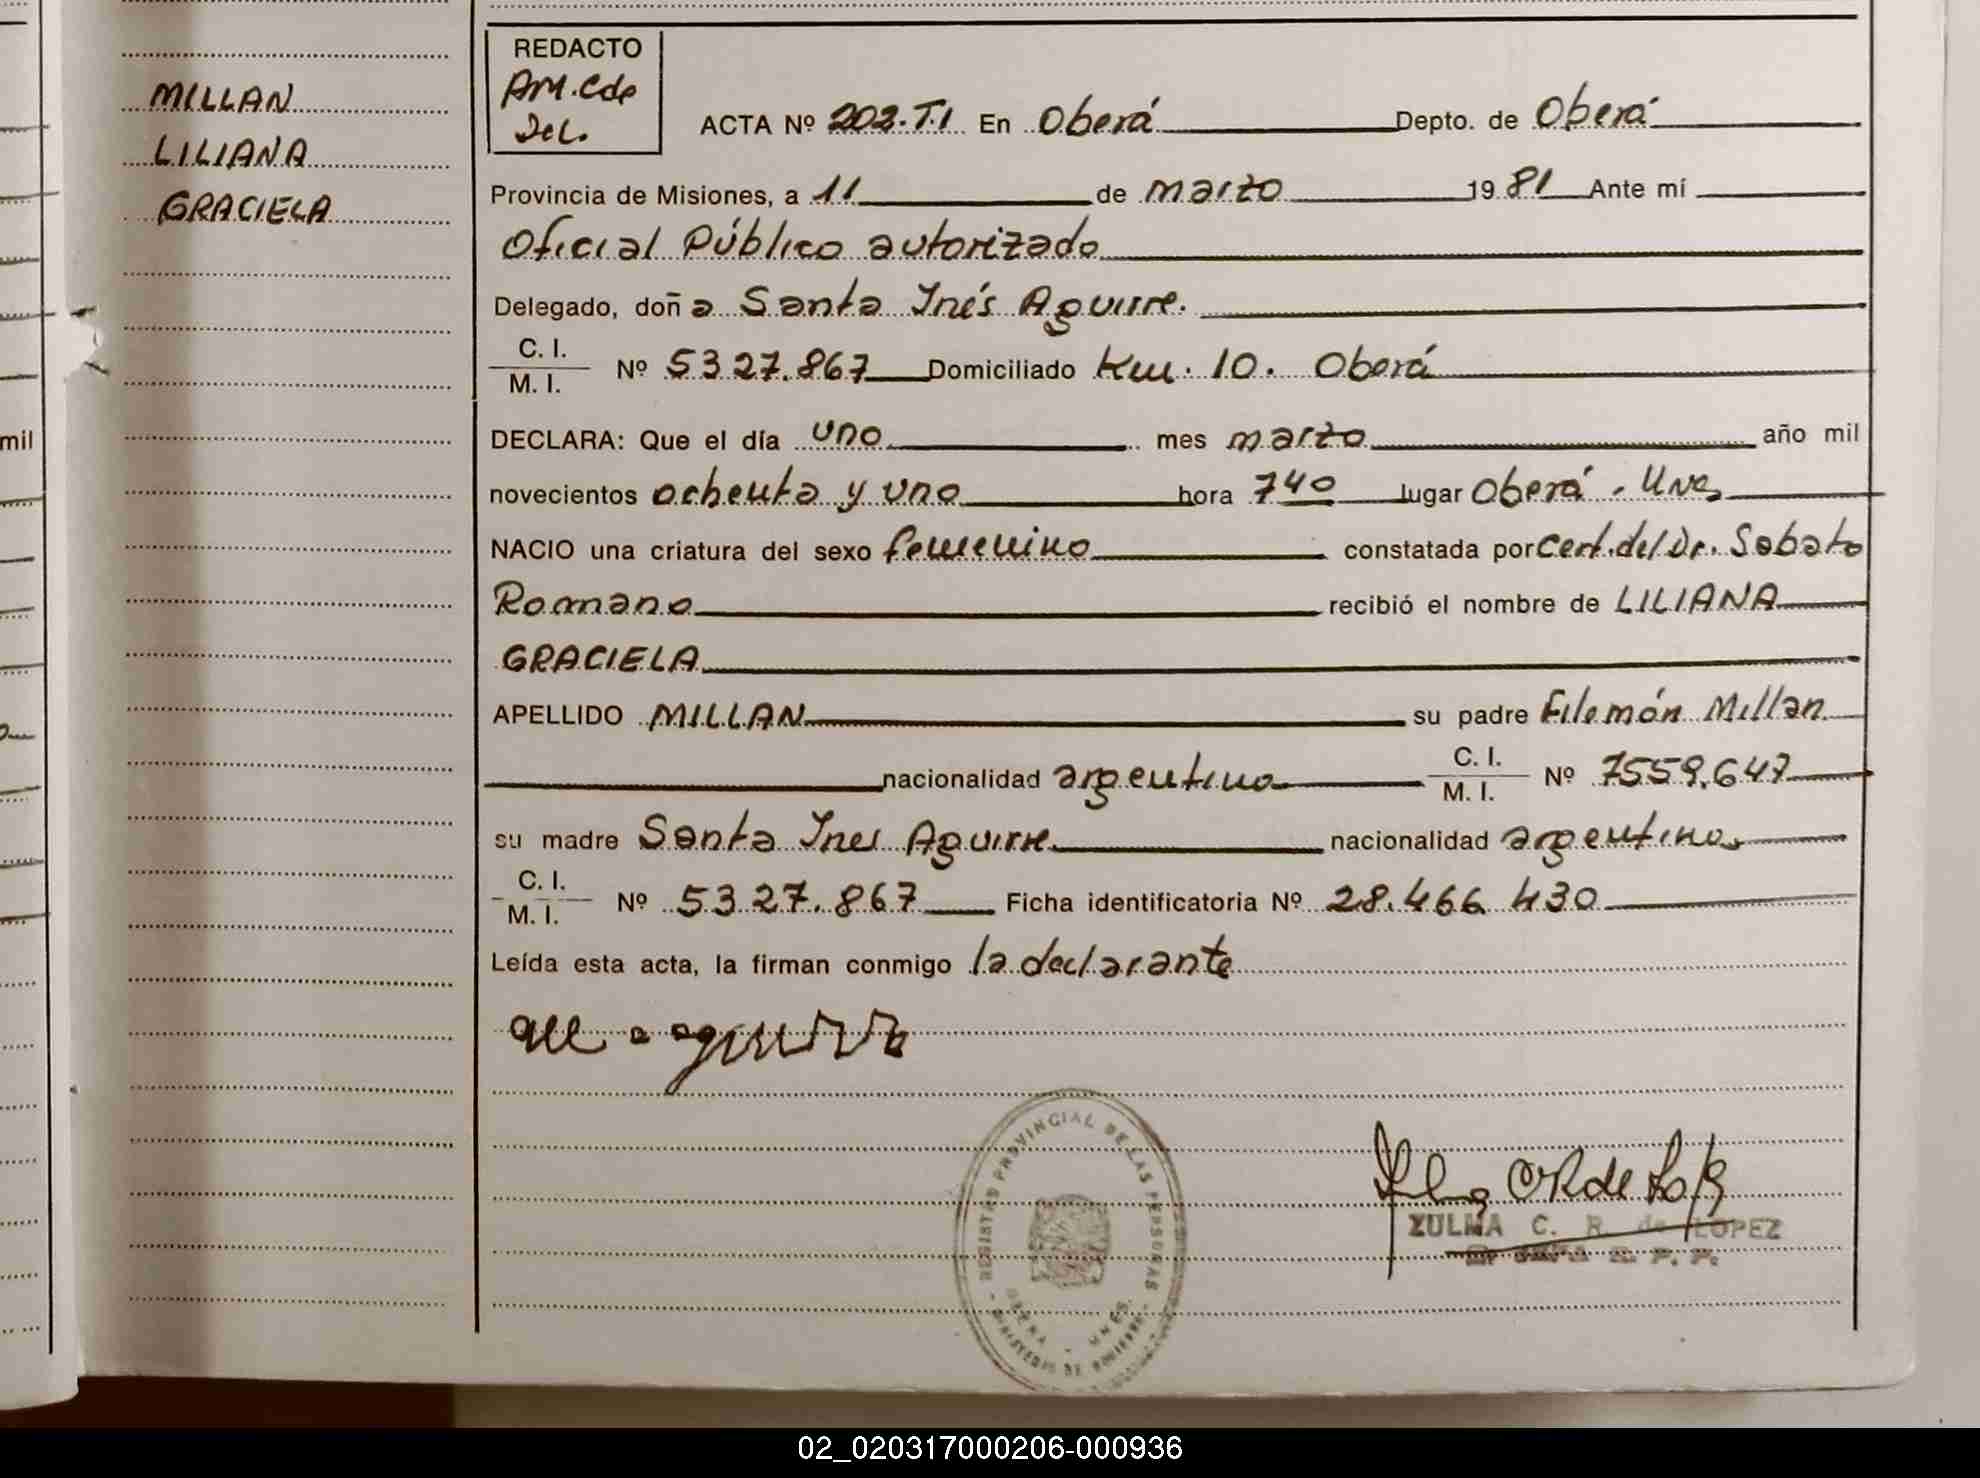 MILLAN
LILIANA
GRACIELA
REDACTO
Am. Cde
Del.
ACTA Nº 202.T.I En Oberá Depto. de Oberá
Provincia de Misiones, a 11 de marzo 19 81 Ante mí
Oficial Público autorizado
Delegado, doña Santa Inés Aguirre.
C. I.
M. I.
Nº 5327.867 Domiciliado Km. 10. Oberá
DECLARA: Que el día uno mes marzo año mil
novecientos ochenta y uno hora 740 lugar Oberá - Mnes
NACIO una criatura del sexo femenino constatada por Cert. del Dr. Sabato
Romano recibió el nombre de LILIANA
GRACIELA
APELLIDO MILLAN su padre Filemón Millan
nacionalidad argentino C. I.
M. I. Nº 7559.647
su madre Santa Ines Aguirre nacionalidad argentina
C. I.
M. I.
Nº 5327.867 Ficha identificatoria Nº 28.466 430
Leída esta acta, la firman conmigo la declarante
REGISTRO PROVINCIAL DE LAS PERSONAS
OBERA - MNES.
MINISTERIO DE GOBIERNO
ZULMA C. R. de LOPEZ
mil
02_020317000206-000936